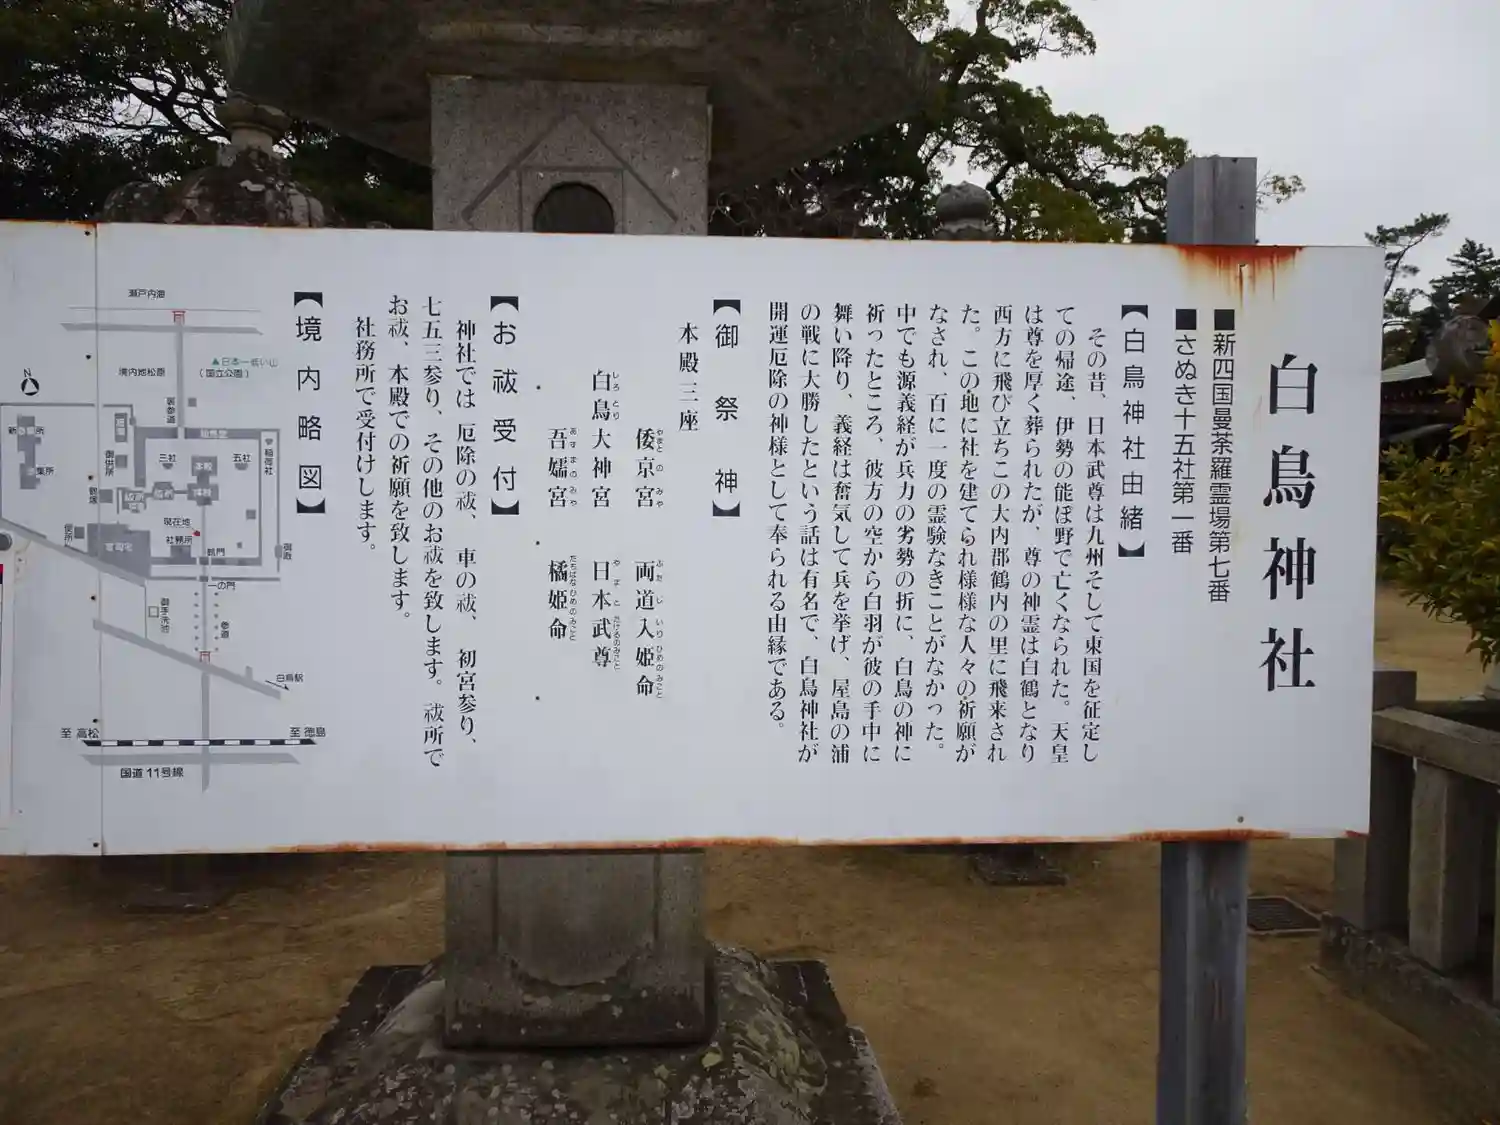 白鳥神社
■新四国曼荼羅霊場第七番
■さぬき十五社第一番
【白鳥神社由緒】
その昔、日本武尊は九州そして東国を征定し
ての帰途、伊勢の能ぼ野で亡くなられた。天皇
は尊を厚く葬られたが、尊の神霊は白鶴となり
西方に飛び立ちこの大内郡鶴内の里に飛来され
た。この地に社を建てられ様様な人々の祈願が
なされ、百に一度の霊験なきことがなかった。
中でも源義経が兵力の劣勢の折に、白鳥の神に
祈ったところ、彼方の空から白羽が彼の手中に
舞い降り、義経は奮気して兵を挙げ、屋島の浦
の戦に大勝したという話は有名で、白鳥神社が
開運厄除の神様として奉られる由縁である。
【御祭神】
本殿三座
倭京宮 両道入姫命
やまとのみや ふたじいりひめのみこと
白鳥大神宮 日本武尊
しろとり やまとたけるのみこと
吾嬬宮 橘姫命
あずまのみや たちばなひめのみこと
【お祓受付】
神社では 厄除の祓、車の祓、初宮参り、
七五三参り、その他のお祓を致します。祓所で
お祓、本殿での祈願を致します。
社務所で受付けします。
【境内略図】
瀬戸内海
▲日本一低い山
境内地松原
(国立公園)
裏参道
N
稲荷社
三社
五社
本殿
御供所
現在地
社務所
鶴門
一の門
御手洗池
参道
白鳥駅
至 高松
至 徳島
国道11号線